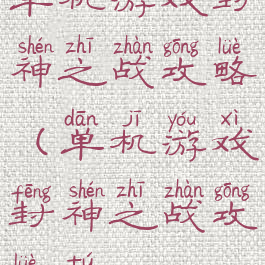 单机游戏封
shén zhī zhàn gōng lüè
神之战攻略
dān jī yóu xì
(单机游戏
fēng shén zhī zhàn gōng
封神之战攻
lüè tú